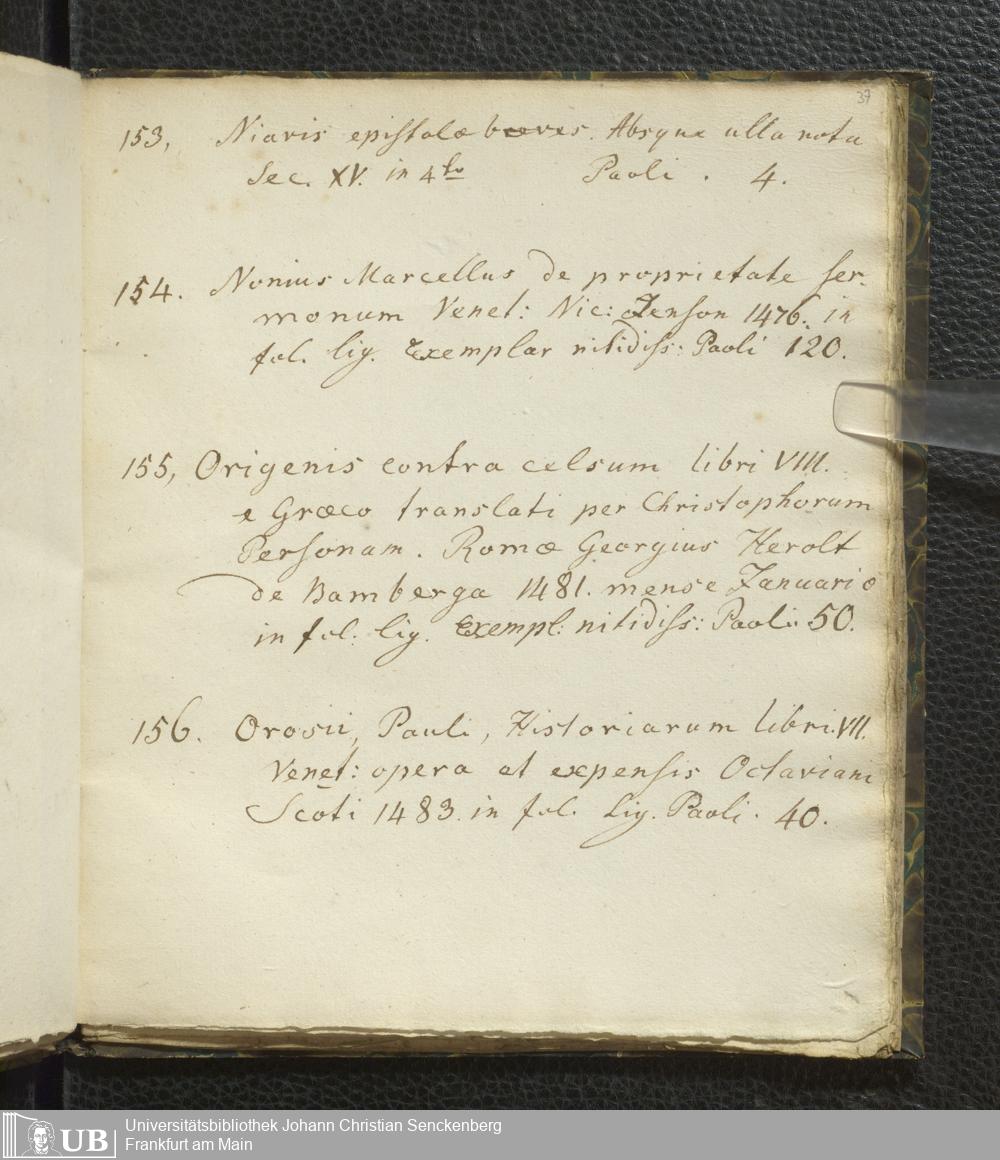 37
153, Niavis epistolæ breves. Absque ulla nota
Sec. XV. in 4to Paoli . 4.
154. Nonius Marcellus de proprietate ser-
monum Venet: Nic: Jenson 1476. in
fol. lig. Exemplar nitidiss: Paoli 120.
155, Origenis contra celsum libri VIII.
e Græco translati per Christophorum
Personam. Romæ Georgius Herolt
de Bamberga 1481. mense Januario
in fol. lig. Exempl: nitidiss: Paoli 50.
156. Orosii, Pauli, Historiarum libri VII.
Venet: opera et expensis Octaviani
Scoti 1483. in fol. Lig. Paoli . 40.
UB Universitätsbibliothek Johann Christian Senckenberg
Frankfurt am Main